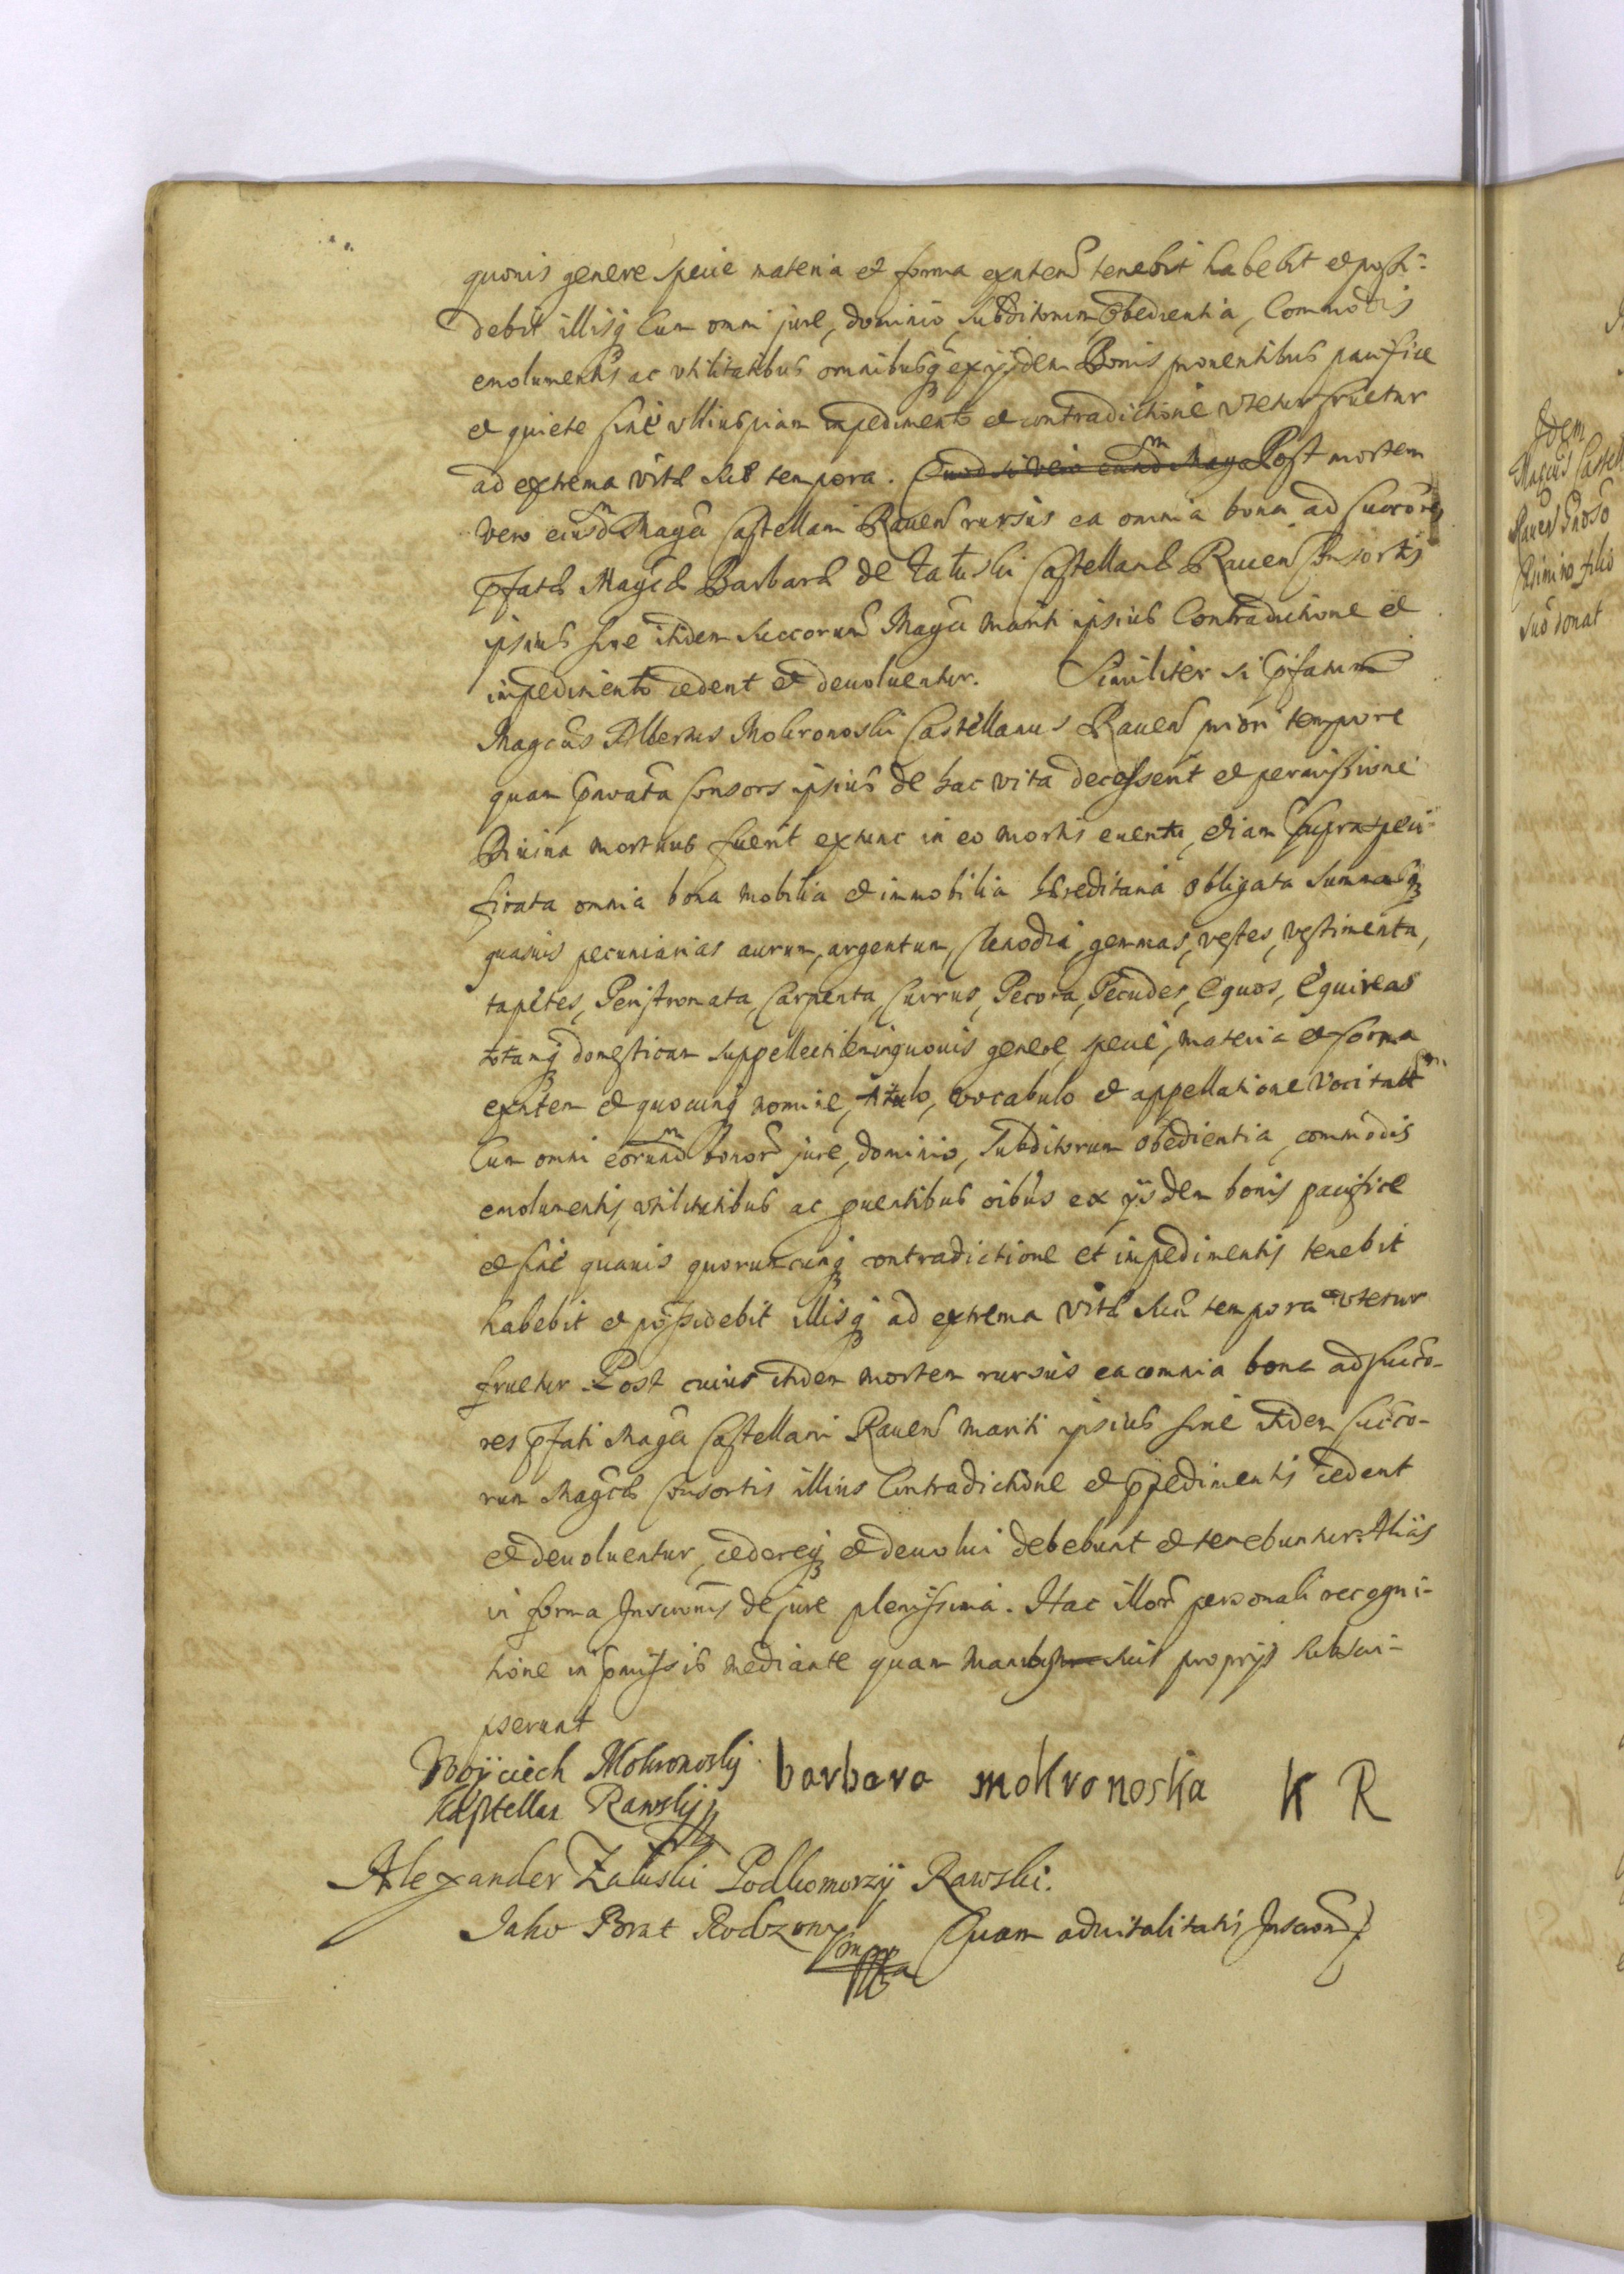 quovis genere specie materia et forma exnten tenebit habebit et possi-
debit illisq cum omni jure, dominio, subditorum obedientia, Commodis
emolumentis ac vtilitatibus omnibusq ex ijsdem Bonis prouenientibus pacifice
et quiete sine vlliuspiam impedimento et contradictione vtetur fruetur
ad extrema vitæ suæ tempora. Quod si vero eiusdm Magci Post mortem
vero eiusdm Magci Castellani Rauen rursus ea omnia bona ad succores
pfatæ Magcæ Barbaræ de Załuski Castellanæ Rauen Consortis
ipsius sine itidem succorum Magci mariti ipsius Contradictione et
impedimento cedent et deuoluentur. Similiter si pfatum
Magcus Albertus Mokronoski Castellanus Rauen priori tempore
quam pnoata Consors ipsius de hac vita decesserit et permissione
Diuina mortuus fuerit extunc in eo mortis euentu, etiam supraspeci-
ficata omnia bona mobilia et immobilia hæreditaria obligata summasq
quasuis pecuniarias aurum, argentum, Clenodia, gemmas, vestes, vestimenta,
tapetes, Peristromata, Carpenta, Currus, Pecora, Pecudes, Equos, Equireas
totamq domesticam suppellectilem in quouis genere, specie, materia et forma
exnten et quocunq nomine, titulo, vocabulo et appellatione vocitatt
Cum omni eorundm bonor jure, dominio, Subditorum obedientia, commodis
emolumentis, vtilitatibus ac puentibus oibus ex ijsdem bonis pacifice
et sine quauis quoruncunq contradictione et impedimentis tenebit
habebit et possidebit illisq ad extrema vitæ suæ tempora vtetur
fruetur Post cuius itidem mortem rursus ea omnia bona ad succo-
res pfati Magci Castellani Rauen mariti ipsius sine itidem succo-
rum Magcæ Consortis illius Contradictione et ppedimentis cedent
et deuoluentur, cedereq et deuolui debebunt et tenebuntur. Aliàs
in forma Inscronis de jure plenissima. Hac illor personali recogni-
tione in pmissis mediante quam manibus suis proprijs subscri-
pserunt
Woyciech Mokronosky barbara mokronoska K R
Kasztellan Rawsky
Alexander Załuski Podkomorzy Rawski.
Jako Brat Rodzony Quam aduitalitatis Inscron
Idem
Magcus Castell
Rauen Gnoso
filio
suo donat